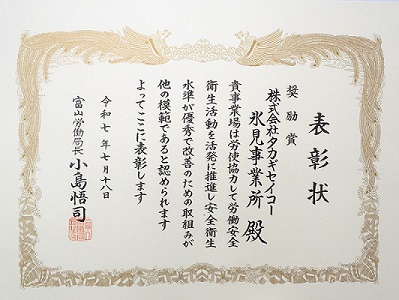 表彰状
奨励賞
株式会社タカギセイコー
氷見事業所 殿
貴事業場は労使協力して労働安全
衛生活動を活発に推進し安全衛生
水準が優秀で改善のための取組みが
他の模範であると認められます
よってここに表彰します
令和七年七月十八日
富山労働局長 小島悟司